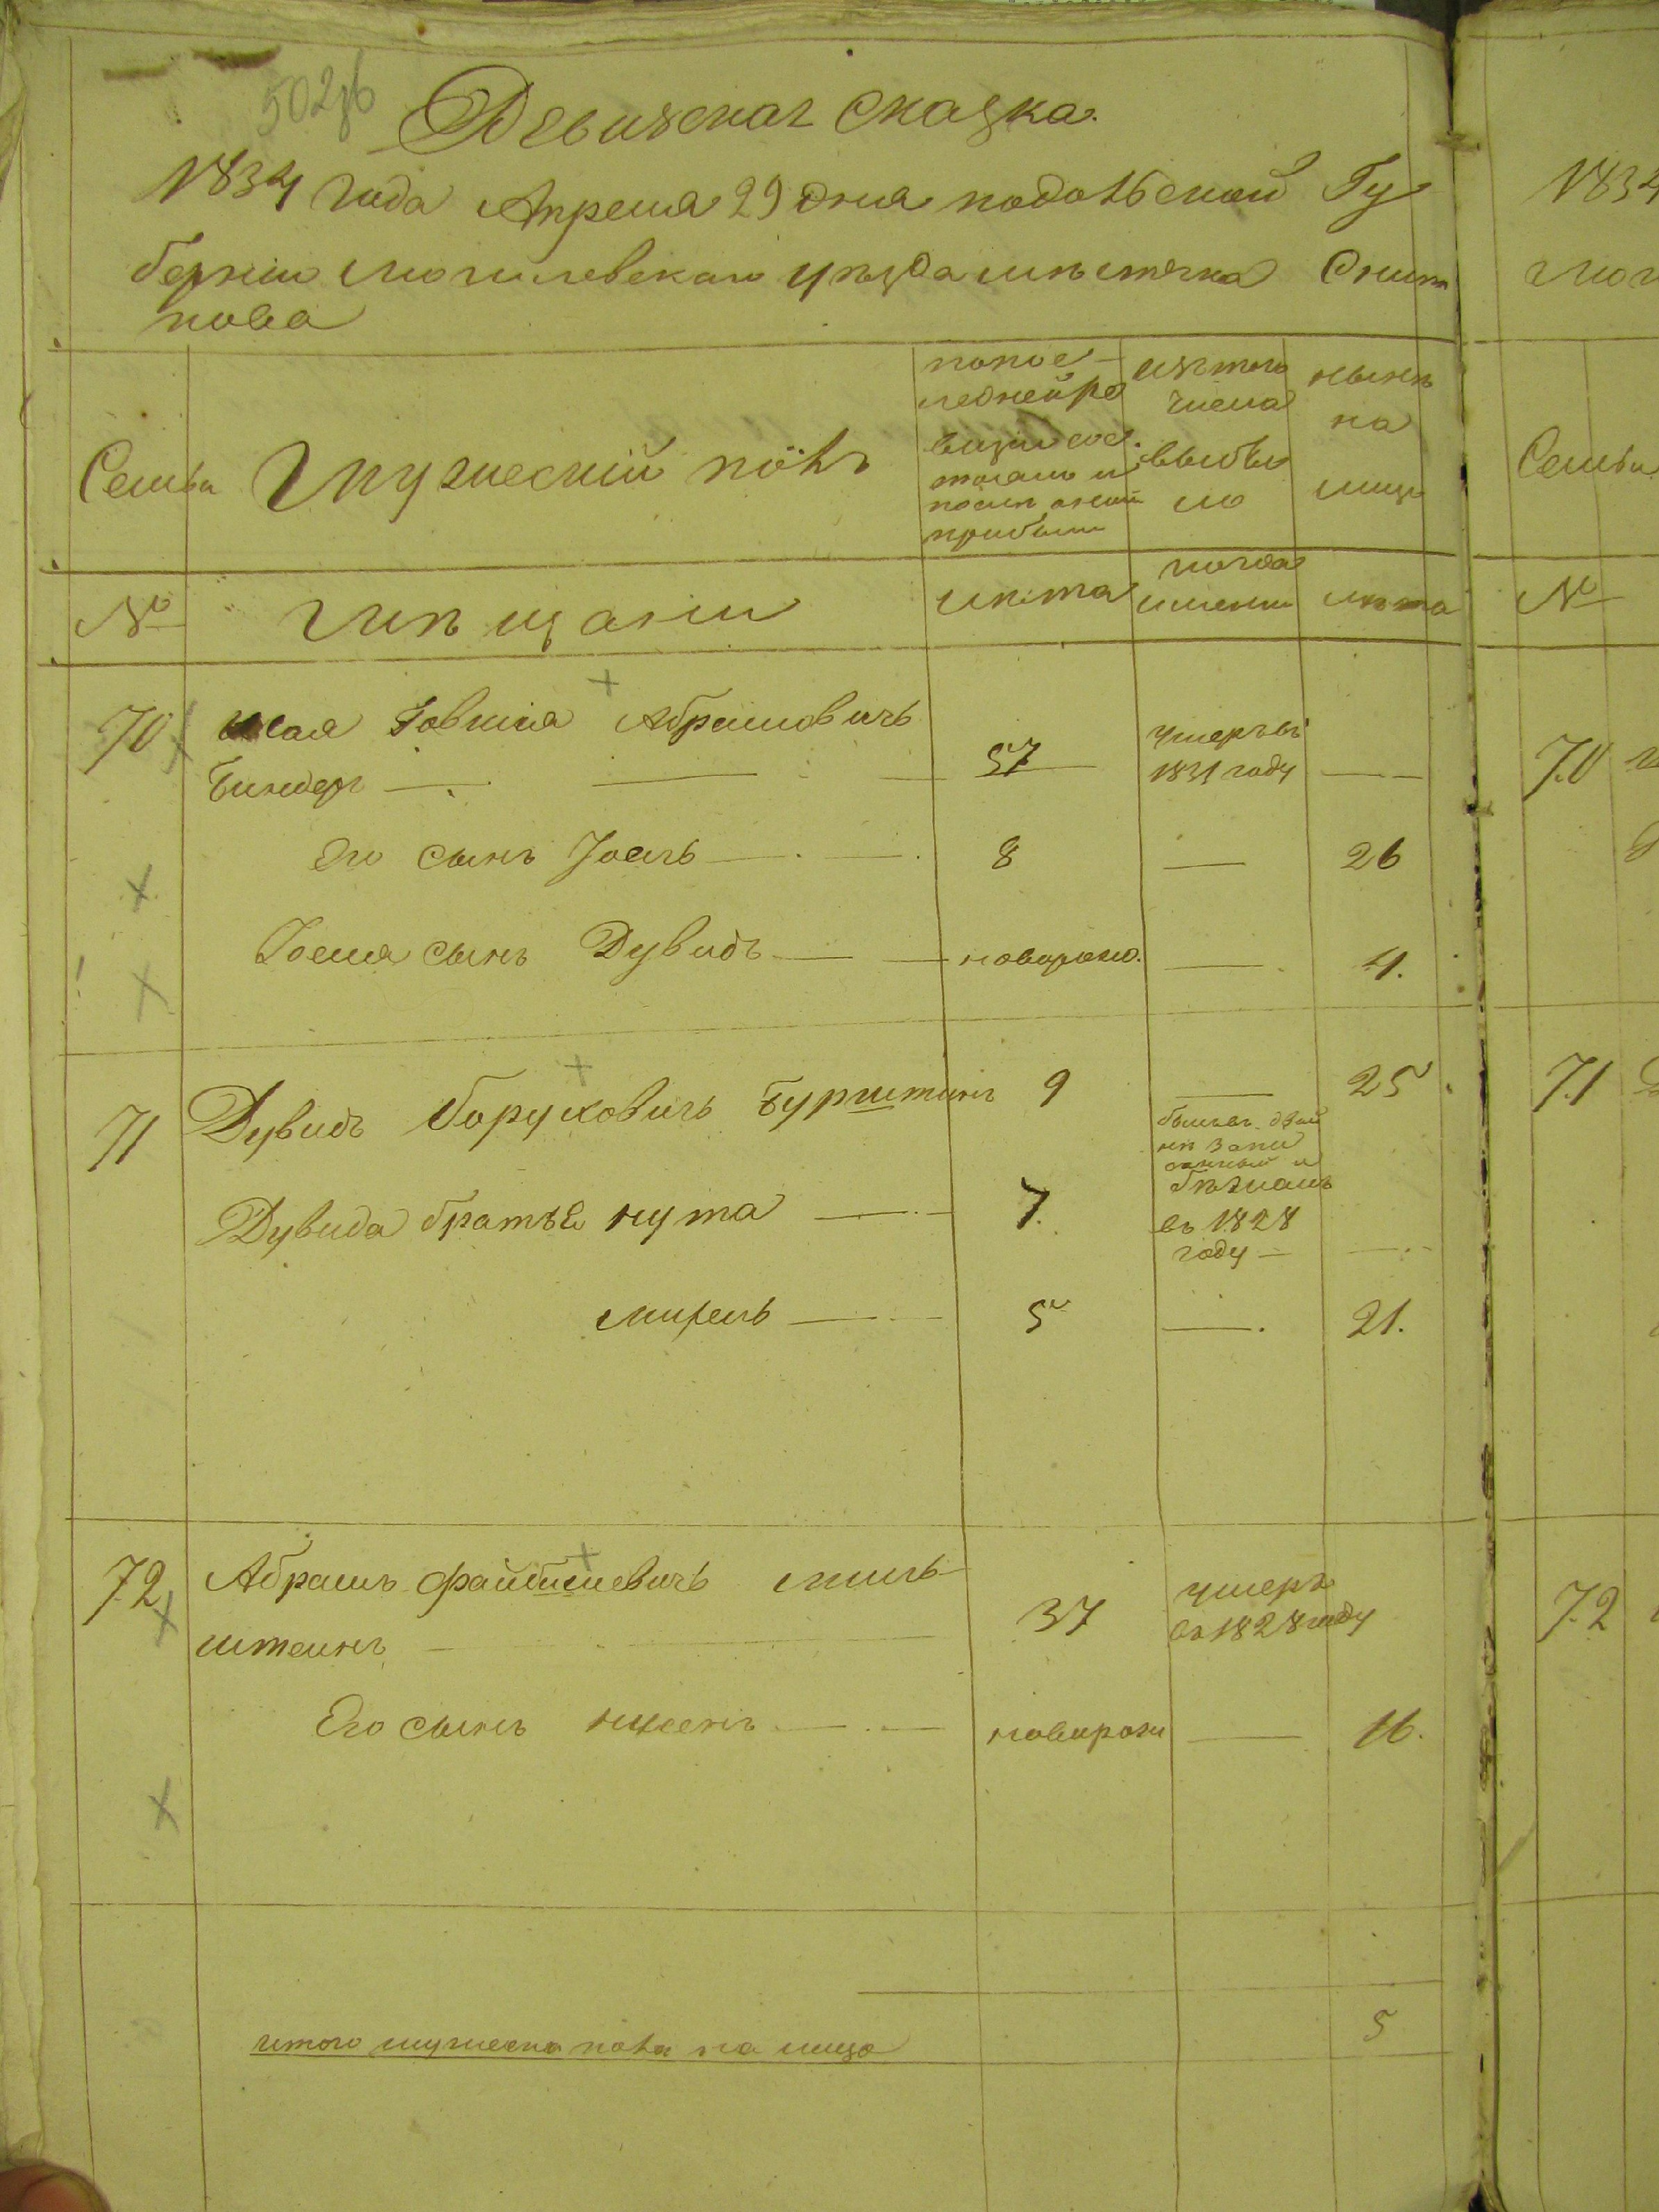 502 об
Ревизская сказка.
1834 года Апреля 29 дня подольской Гу
берніи могилевскаго уѣзда мѣстечка Снит
кова
Семьи
Мужескій полъ
по пос-
ледней ре
визіи сос
тояло и
послѣ оной
прибыло
изъ того
числа
выбы
ло
нынѣ
на
лицо
№
Мѣщани
лѣта
когда
именно
лѣта
70
Иося Говшія Абрамовичъ
Биндер
57
умеръ въ
1831 году
Его сынъ Іоель
8
26
Іоеля сынъ Дувидъ
новорожд.
4.
71
Дувидъ Борухович Бурштинъ
9
25
Дувида братья Нута
7.
бѣжалъ
въ 1828
году
Мирель
5
21.
72
Абрамъ Файбишевичъ Миль
штеинъ
37
умеръ
въ 1828 году
Его сынъ
новорож
16.
итого мужеска пола на лицо
5
1834
Семьи
№
70
71
72